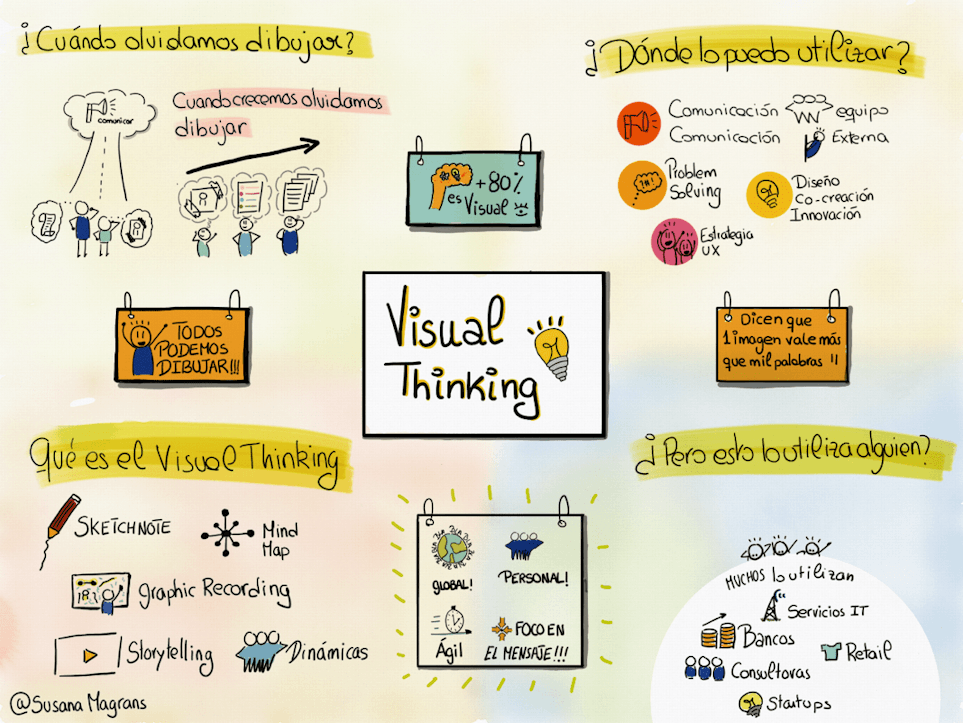 ¿Cuándo olvidamos dibujar?
comunicar
Cuando crecemos olvidamos
dibujar
+80%
es Visual
¿Dónde lo puedo utilizar?
Comunicación equipo
Comunicación Externa
Problem
Solving
Diseño
Co-creación
Innovación
Estrategia
UX
TODOS
PODEMOS
DIBUJAR!!!
Visual
Thinking
Dicen que
1 imagen vale más
que mil palabras !!
Qué es el Visual Thinking
SKETCHNOTE
Mind
Map
Graphic Recording
Storytelling
Dinámicas
GLOBAL!
PERSONAL!
Ágil
FOCO EN
EL MENSAJE!!!
¿Pero esto lo utiliza alguien?
MUCHOS lo utilizan
Servicios IT
Bancos
Retail
Consultoras
Startups
@Susana Magrans